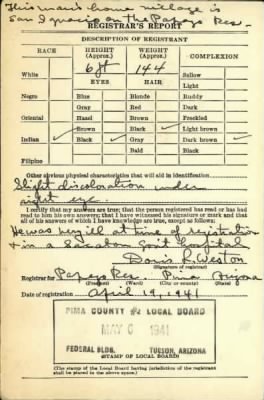 This man's home village is
San Ignacio on the Papago Res.
REGISTRAR'S REPORT
DESCRIPTION OF REGISTRANT
RACE HEIGHT (Approx.) WEIGHT (Approx.) COMPLEXION
6 ft 144
White EYES HAIR Sallow
Light
Negro Blue Blonde Ruddy
Gray Red Dark
Oriental Hazel Brown Freckled
Brown Black ✓ Light brown
Indian ✓ Black ✓ Gray Dark brown ✓
Bald Black
Filipino
Other obvious physical characteristics that will aid in identification
Slight discoloration under
right eye.
I certify that my answers are true; that the person registered has read or has had
read to him his own answers; that I have witnessed his signature or mark and that
all of his answers of which I have knowledge are true, except as follows:
He was very ill at time of registration
in a Govt Hospital
Doris L. Weston
(Signature of registrar)
Registrar for Papago Res. Pima Arizona
(Precinct) (Ward) (City or County) (State)
Date of registration April 19, 1941
PIMA COUNTY #2 LOCAL BOARD
MAY 6 1941
FEDERAL BLDG. TUCSON, ARIZONA
(STAMP OF LOCAL BOARD)
(The stamp of the Local Board having jurisdiction of the registrant
shall be placed in the above space.)